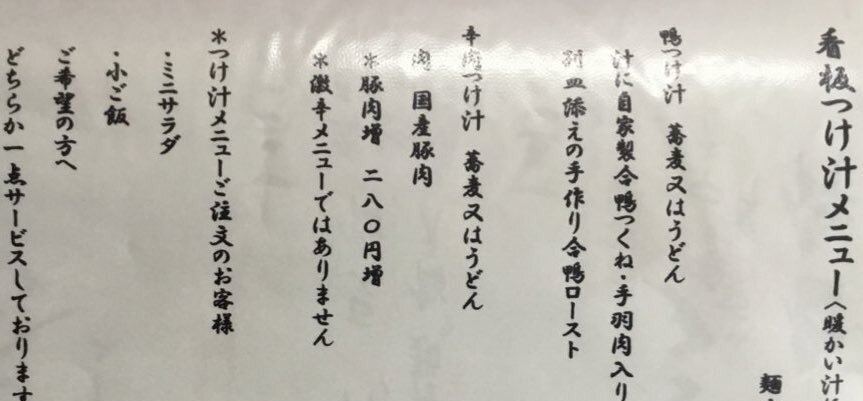 看板つけ汁メニュー〈暖かい汁
麺
鴨つけ汁 蕎麦又はうどん
汁に自家製合鴨つくね・手羽肉入り
別皿添えの手作り合鴨ロースト
辛肉つけ汁 蕎麦又はうどん
肉 国産豚肉
＊豚肉増 二八〇円増
＊激辛メニューではありません
＊つけ汁メニューご注文のお客様
・ミニサラダ
・小ご飯
ご希望の方へ
どちらか一点サービスしております